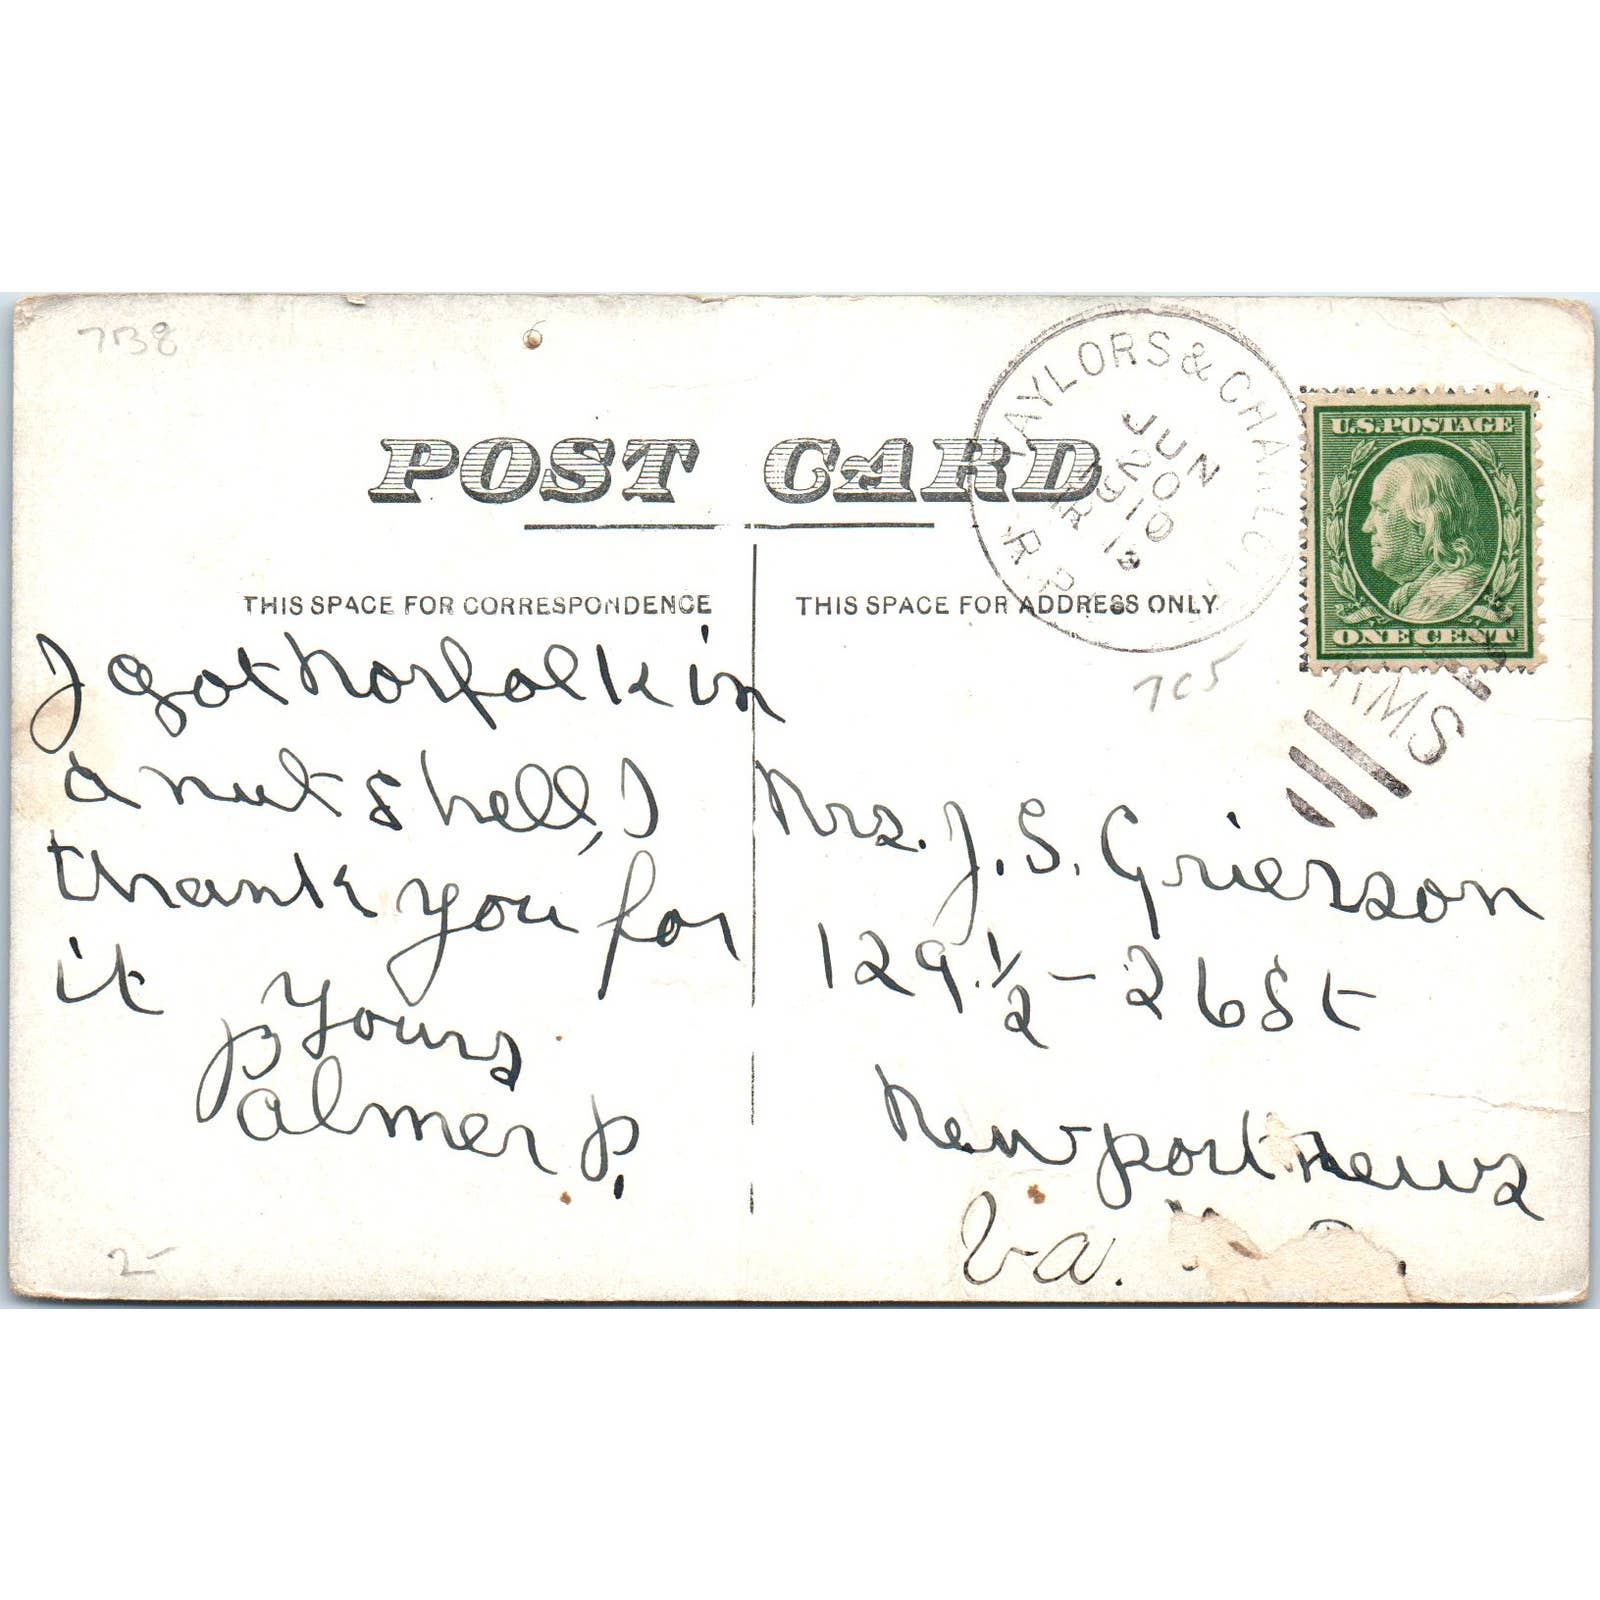 7B8
POST CARD
TAYLORS & CHARLOTTE
JUN
20
1910
R.P.O.
THIS SPACE FOR CORRESPONDENCE
THIS SPACE FOR ADDRESS ONLY
U.S. POSTAGE
ONE CENT
RMS
7C5
I got Norfolk in
a nutshell, I
thank you for
it
Yours
Palmer P.
Mrs. J. S. Grierson
129 1/2 - 26 St
Newport News
Va.
2-